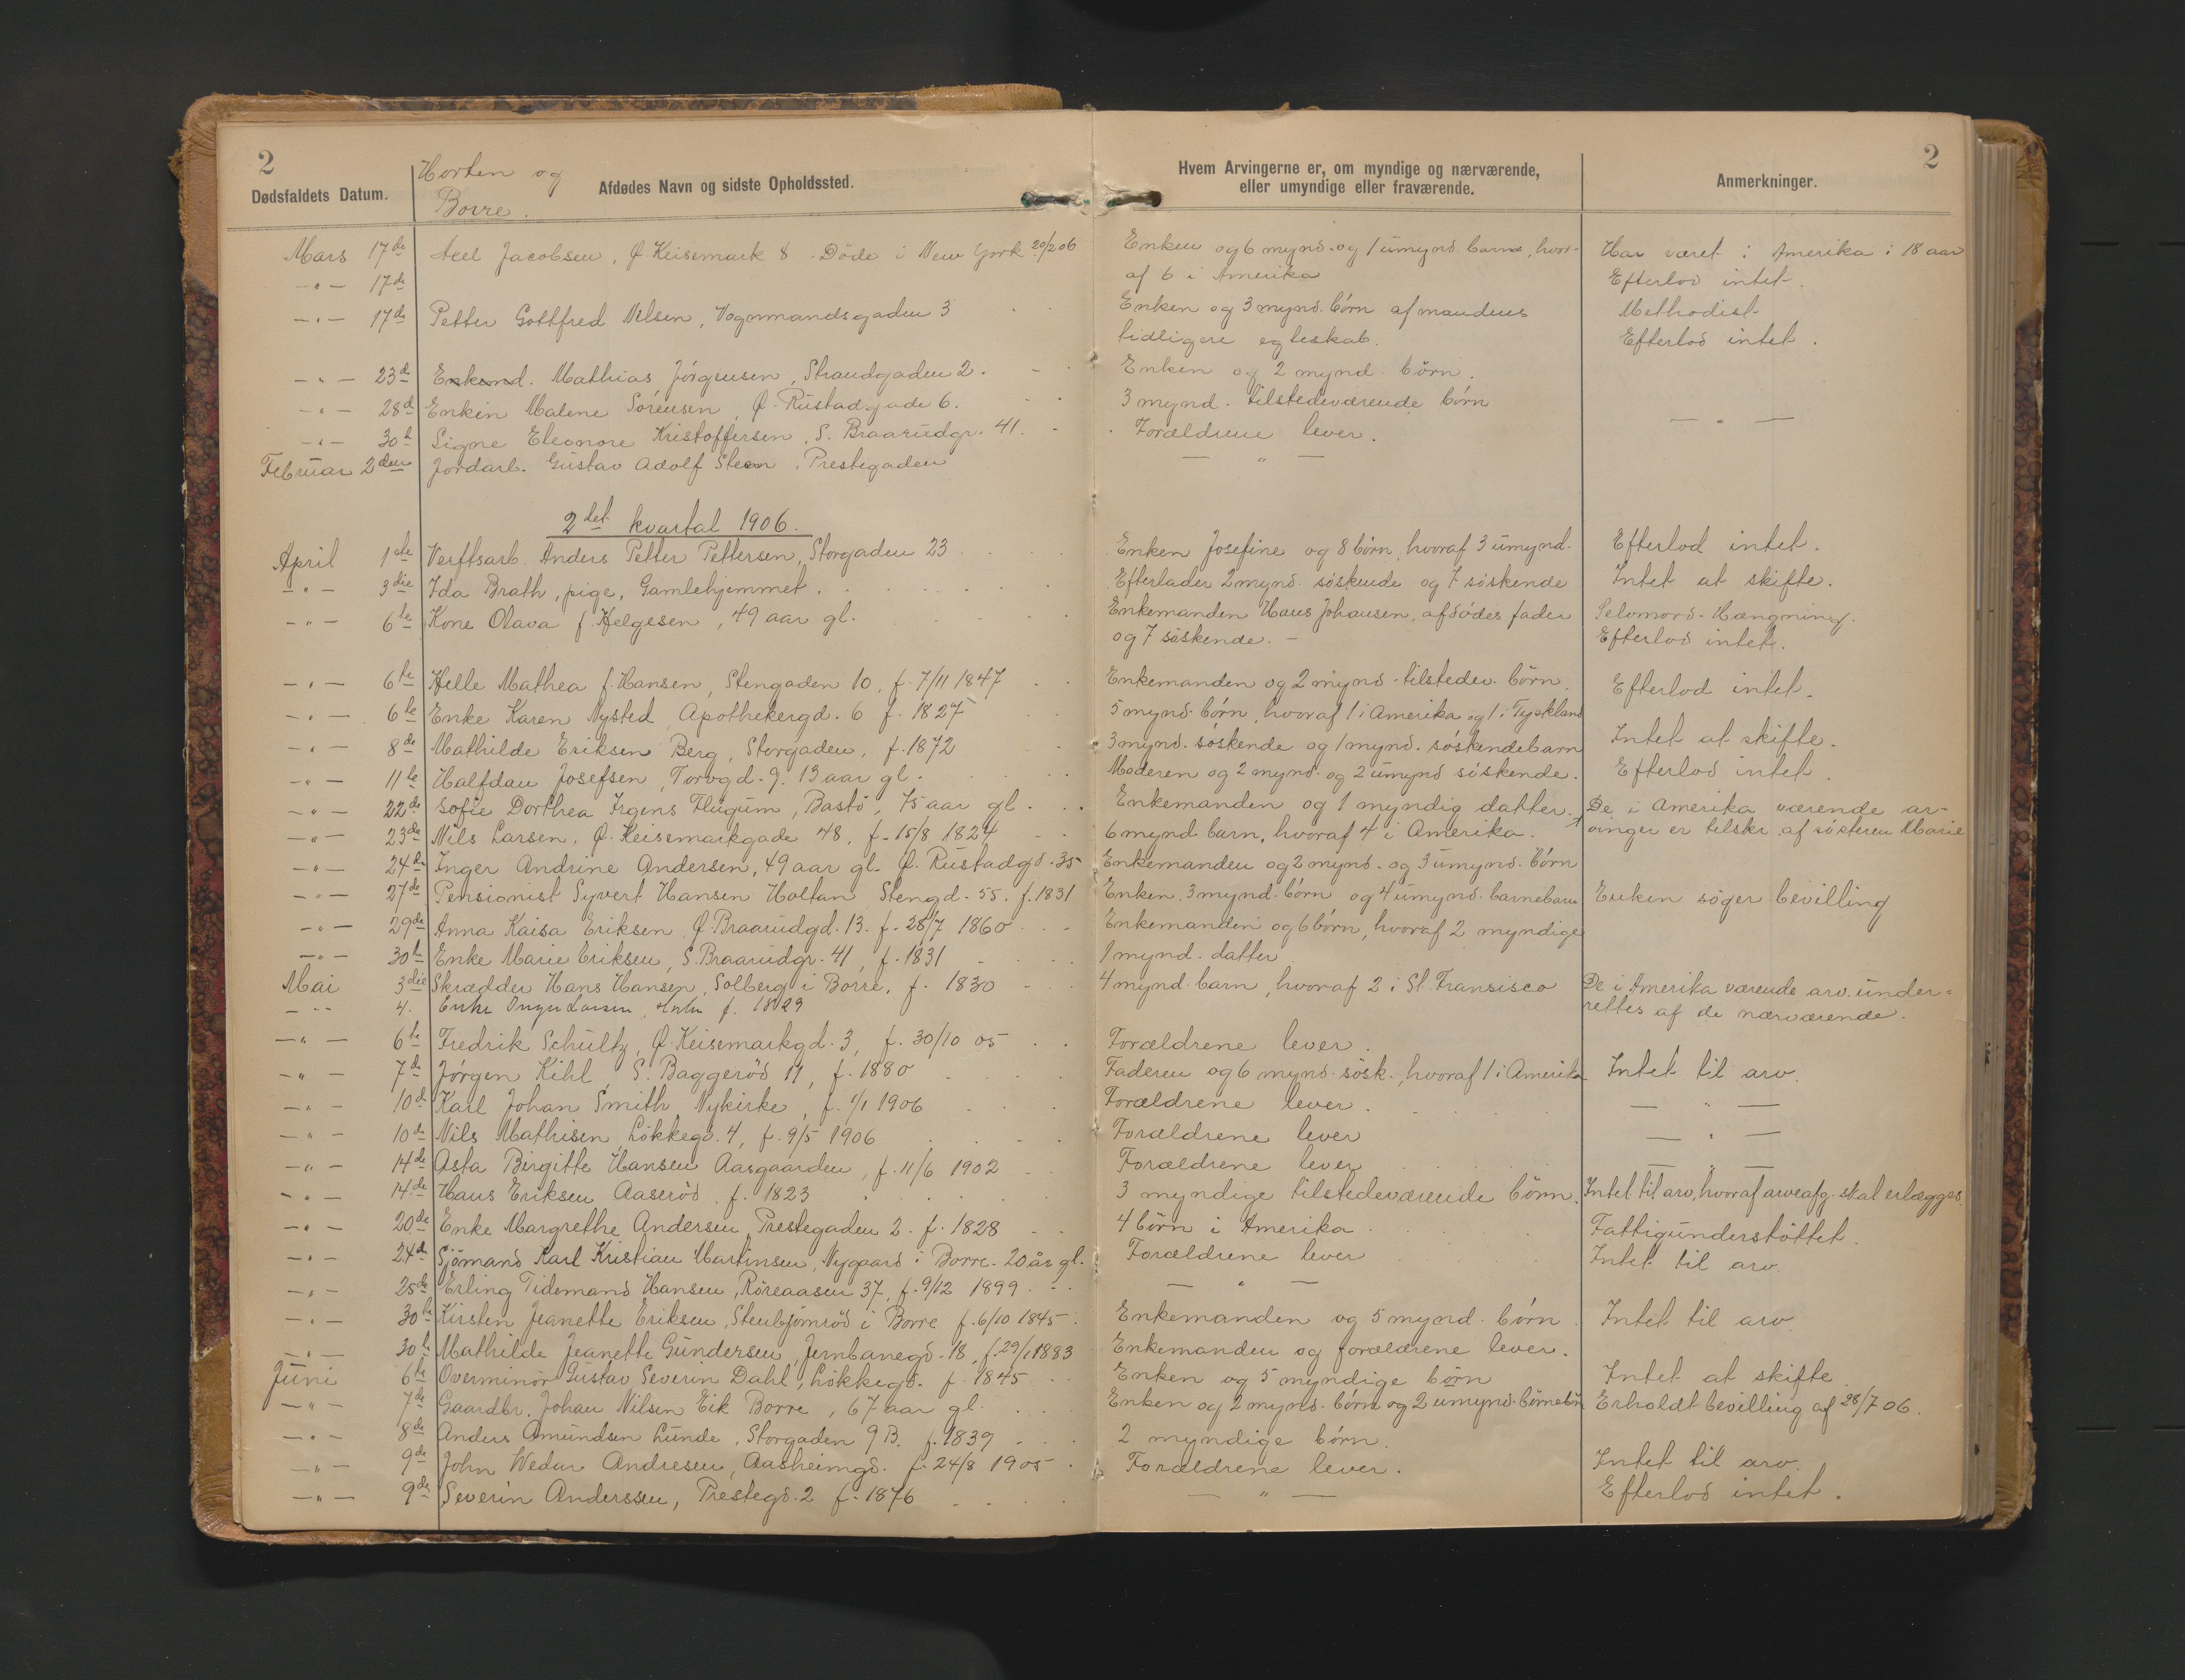 2
2
Dødsfaldets Datum.
Horten og
Borre.
Afdødes Navn og sidste Opholdssted.
Hvem Arvingerne er, om myndige og nærværende,
eller umyndige eller fraværende.
Anmerkninger.
Mars 17de Axel Jacobsen, Ø. Keisemark 8. Døde i New York 20/2 06 Enken og 6 mynd. og 1 umynd barn, hvor- Har været i Amerika i 18 aar
—"— 17de af 6 i Amerika Efterlod intet.
—"— 17de Petter Gottfred Nilsen, Vognmandsgaden 3 Enken og 3 mynd. börn af mandens Methodist
tidligere egteskab. Efterlod intet.
—"— 23de Enkemd. Mathias Jörgensen, Strandgaden 2. Enken og 2 mynd. börn.
—"— 28de Enken Malene Sörensen, Ø. Rustadgade 6. 3 mynd. tilstedeværende börn —"—
—"— 30te Signe Eleonore Kristoffersen, S. Braarudgr. 41. Forældrene lever.
Februar 2den Jordarb. Gustav Adolf Steen, Prestegaden —"—
2det kvartal 1906.
April 1ste Verftsarb. Anders Petter Pettersen, Storgaden 23 Enken Josefine og 8 börn, hvoraf 3 umynd. Efterlod intet.
—"— 3die Ida Brath, pige, Gamlehjemmet. Efterlader 2 mynd. söskende og 7 söskende Intet at skifte.
—"— 6te Kone Olava f. Helgesen, 49 aar gl. Enkemanden Hans Johansen, afdödes fader Selvmord-Hængning.
og 7 söskende. — Efterlod intet.
—"— 6te Helle Mathea f. Hansen, Stengaden 10, f. 7/11 1847 Enkemanden og 2 mynd. tilstedev. börn Efterlod intet.
—"— 6te Enke Karen Nysted, Apothekergd. 6 f. 1827 5 mynd. börn, hvoraf 1 i Amerika og 1 i Tyskland
—"— 8de Mathilde Eriksen Berg, Storgaden, f. 1872 3 mynd. söskende og 1 mynd. söskendebarn Intet at skifte.
—"— 11te Halfdan Josefsen, Torvgd. 9. 13 aar gl. Moderen og 2 mynd. og 2 umynd söskende. Efterlod intet.
—"— 22de Sofie Dorthea Irgens Flugum, Bastö, 75 aar gl. Enkemanden og 1 myndig datter. De i Amerika værende ar-
—"— 23de Nils Larsen, Ø. Keisemarkgade 48, f. 15/8 1824 6 mynd. barn, hvoraf 4 i Amerika. vinger er tilskr. af sösteren Marie
—"— 24de Inger Andrine Andersen, 49 aar gl. Ø. Rustadgd. 35 Enkemanden og 2 mynd. og 3 umynd. börn
—"— 27de Pensionist Syvert Hansen Holtan, Stengd. 55. f. 1831 Enken, 3 mynd. börn og 4 umynd. barnebarn Enken söger bevilling
—"— 29de Anna Kaisa Eriksen, Ø. Braarudgd. 13. f. 28/7 1860 Enkemanden og 6 börn, hvoraf 2 myndige
—"— 30te Enke Marie Eriksen, S. Braarudgr. 41, f. 1831 1 mynd. datter
Mai 3die Skrædder Hans Hansen, Solberg i Borre, f. 1830 4 mynd. barn, hvoraf 2 i St. Fransisco De i Amerika værende arv. under-
—"— 4. Enke Inger Larsen, f. 1829 rettes af de nærværende.
—"— 6te Fredrik Schultz, Ø. Keisemarkgd. 3, f. 30/10 05 Forældrene lever.
—"— 7de Jörgen Kihl, S. Baggeröd 11, f. 1880 Faderen og 6 mynd. sösk., hvoraf 1 i Amerika Intet til arv.
—"— 10de Karl Johan Smith, Nykirke, f. 1/1 1906 Forældrene lever. —"—
—"— 10de Nils Mathisen, Lökkegd. 4, f. 9/5 1906 Forældrene lever —"—
—"— 14de Asta Birgitte Hansen Aasgaarden, f. 11/6 1902 Forældrene lever —"—
—"— 14de Hans Eriksen Aaseröd, f. 1823 3 myndige tilstedeværende börn. Intet til arv, hvoraf arveafg. skal erlægges.
—"— 20de Enke Margrethe Andersen, Prestegaden 2. f. 1828 4 börn i Amerika Fattigunderstöttet.
—"— 24de Sjömand Karl Kristian Martinsen, Nygaard i Borre. 20 år gl. Forældrene lever Intet til arv.
—"— 25de Erling Tidemand Hansen, Röreaasen 37, f. 9/12 1899 —"—
—"— 30te Kirsten Jeanette Eriksen, Stenbjörnröd i Borre f. 6/10 1845 Enkemanden og 5 mynd. börn. Intet til arv.
—"— 30te Mathilde Jeanette Gundersen, Jernbanegd. 18, f. 29/1 1883 Enkemanden og forældrene lever.
Juni 6te Overminör Gustav Severin Dahl, Lökkegd. f. 1845 Enken og 5 myndige börn Intet at skifte
—"— 7de Gaardbr. Johan Nilsen Eik Borre, 67 aar gl. Enken og 2 mynd. börn og 2 umynd. börnebörn Erholdt bevilling af 28/7 06.
—"— 8de Anders Amundsen Lunde, Storgaden 9B. f. 1839 2 myndige börn.
—"— 9de John Wedar Andresen, Aasheimgd. f. 24/8 1905 Forældrene lever. Intet til arv.
—"— 9de Severin Anderssen, Prestegd. 2 f. 1876 —"— Efterlod intet.